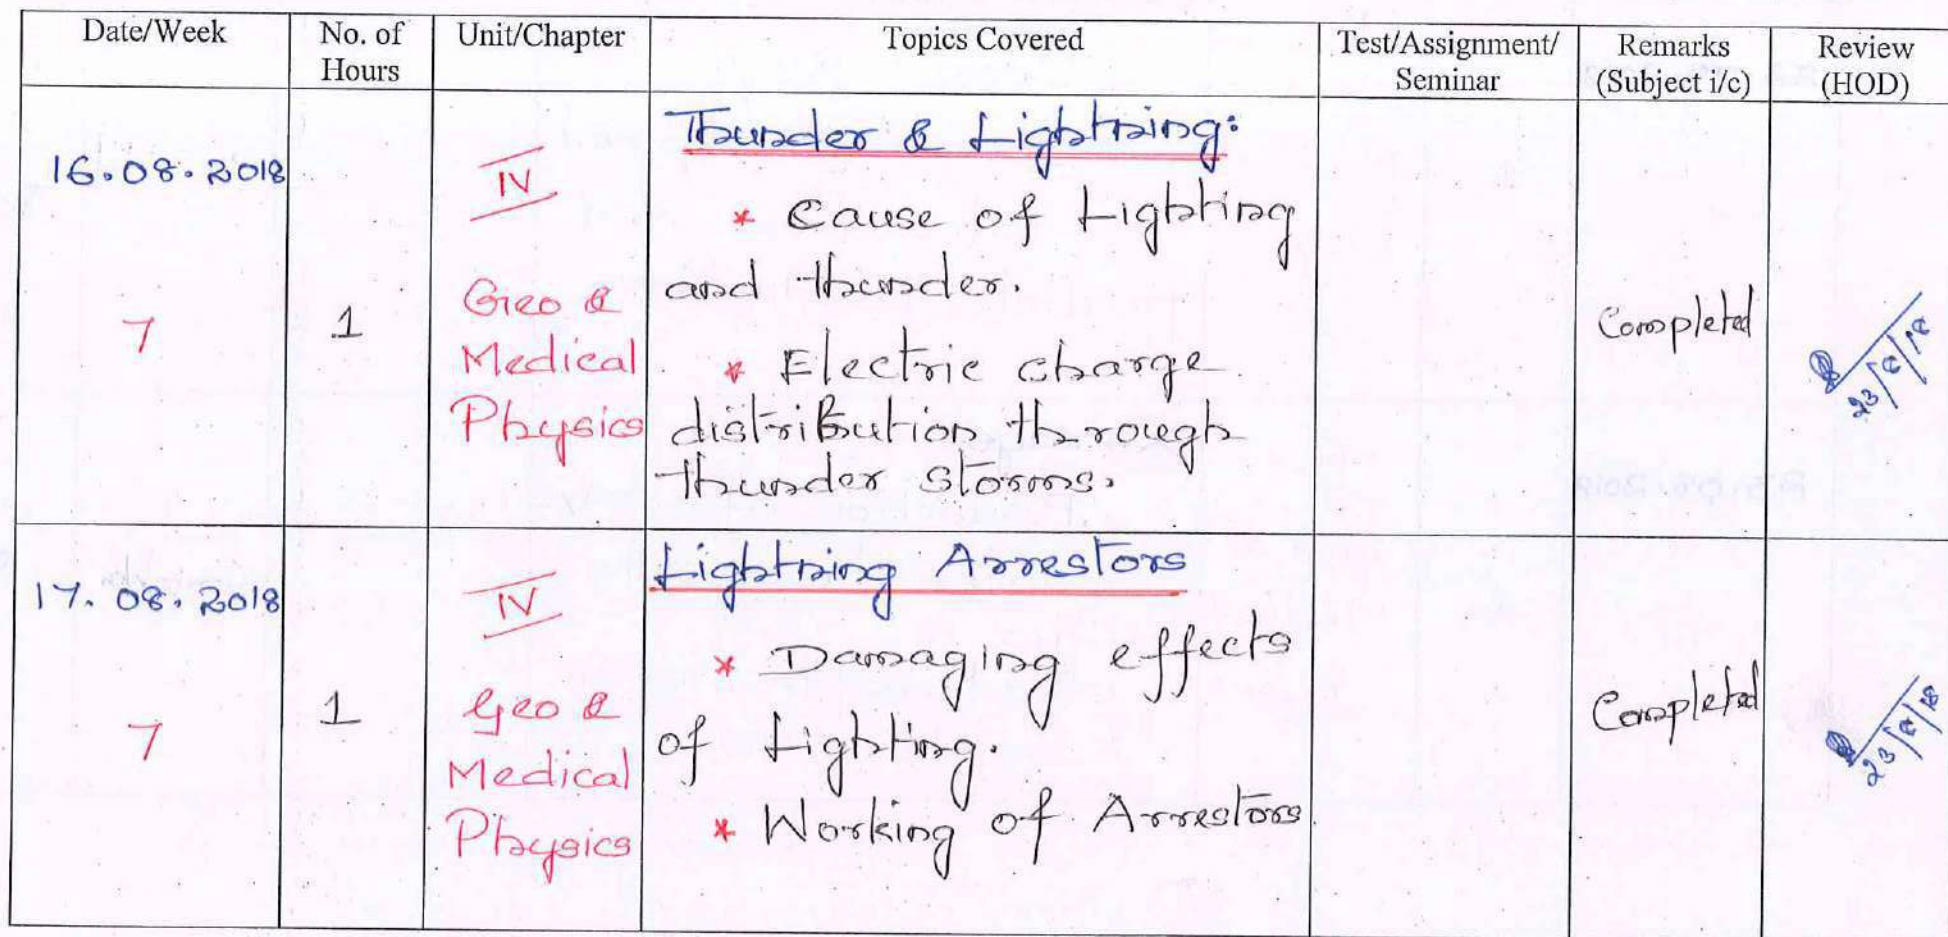 Date/Week No. of Hours Unit/Chapter Topics Covered Test/Assignment/ Seminar Remarks (Subject i/c) Review (HOD)
16.08.2018
7
1
IV
Geo &
Medical
Physics
Thunder & Lightning:
* Cause of Lighting
and thunder.
* Electric charge
distribution through
thunder storms.
Completed
23/8/18
17.08.2018
7
1
IV
Geo &
Medical
Physics
Lightning Arrestors
* Damaging effects
of Lighting.
* Working of Arrestors
Completed
23/8/18